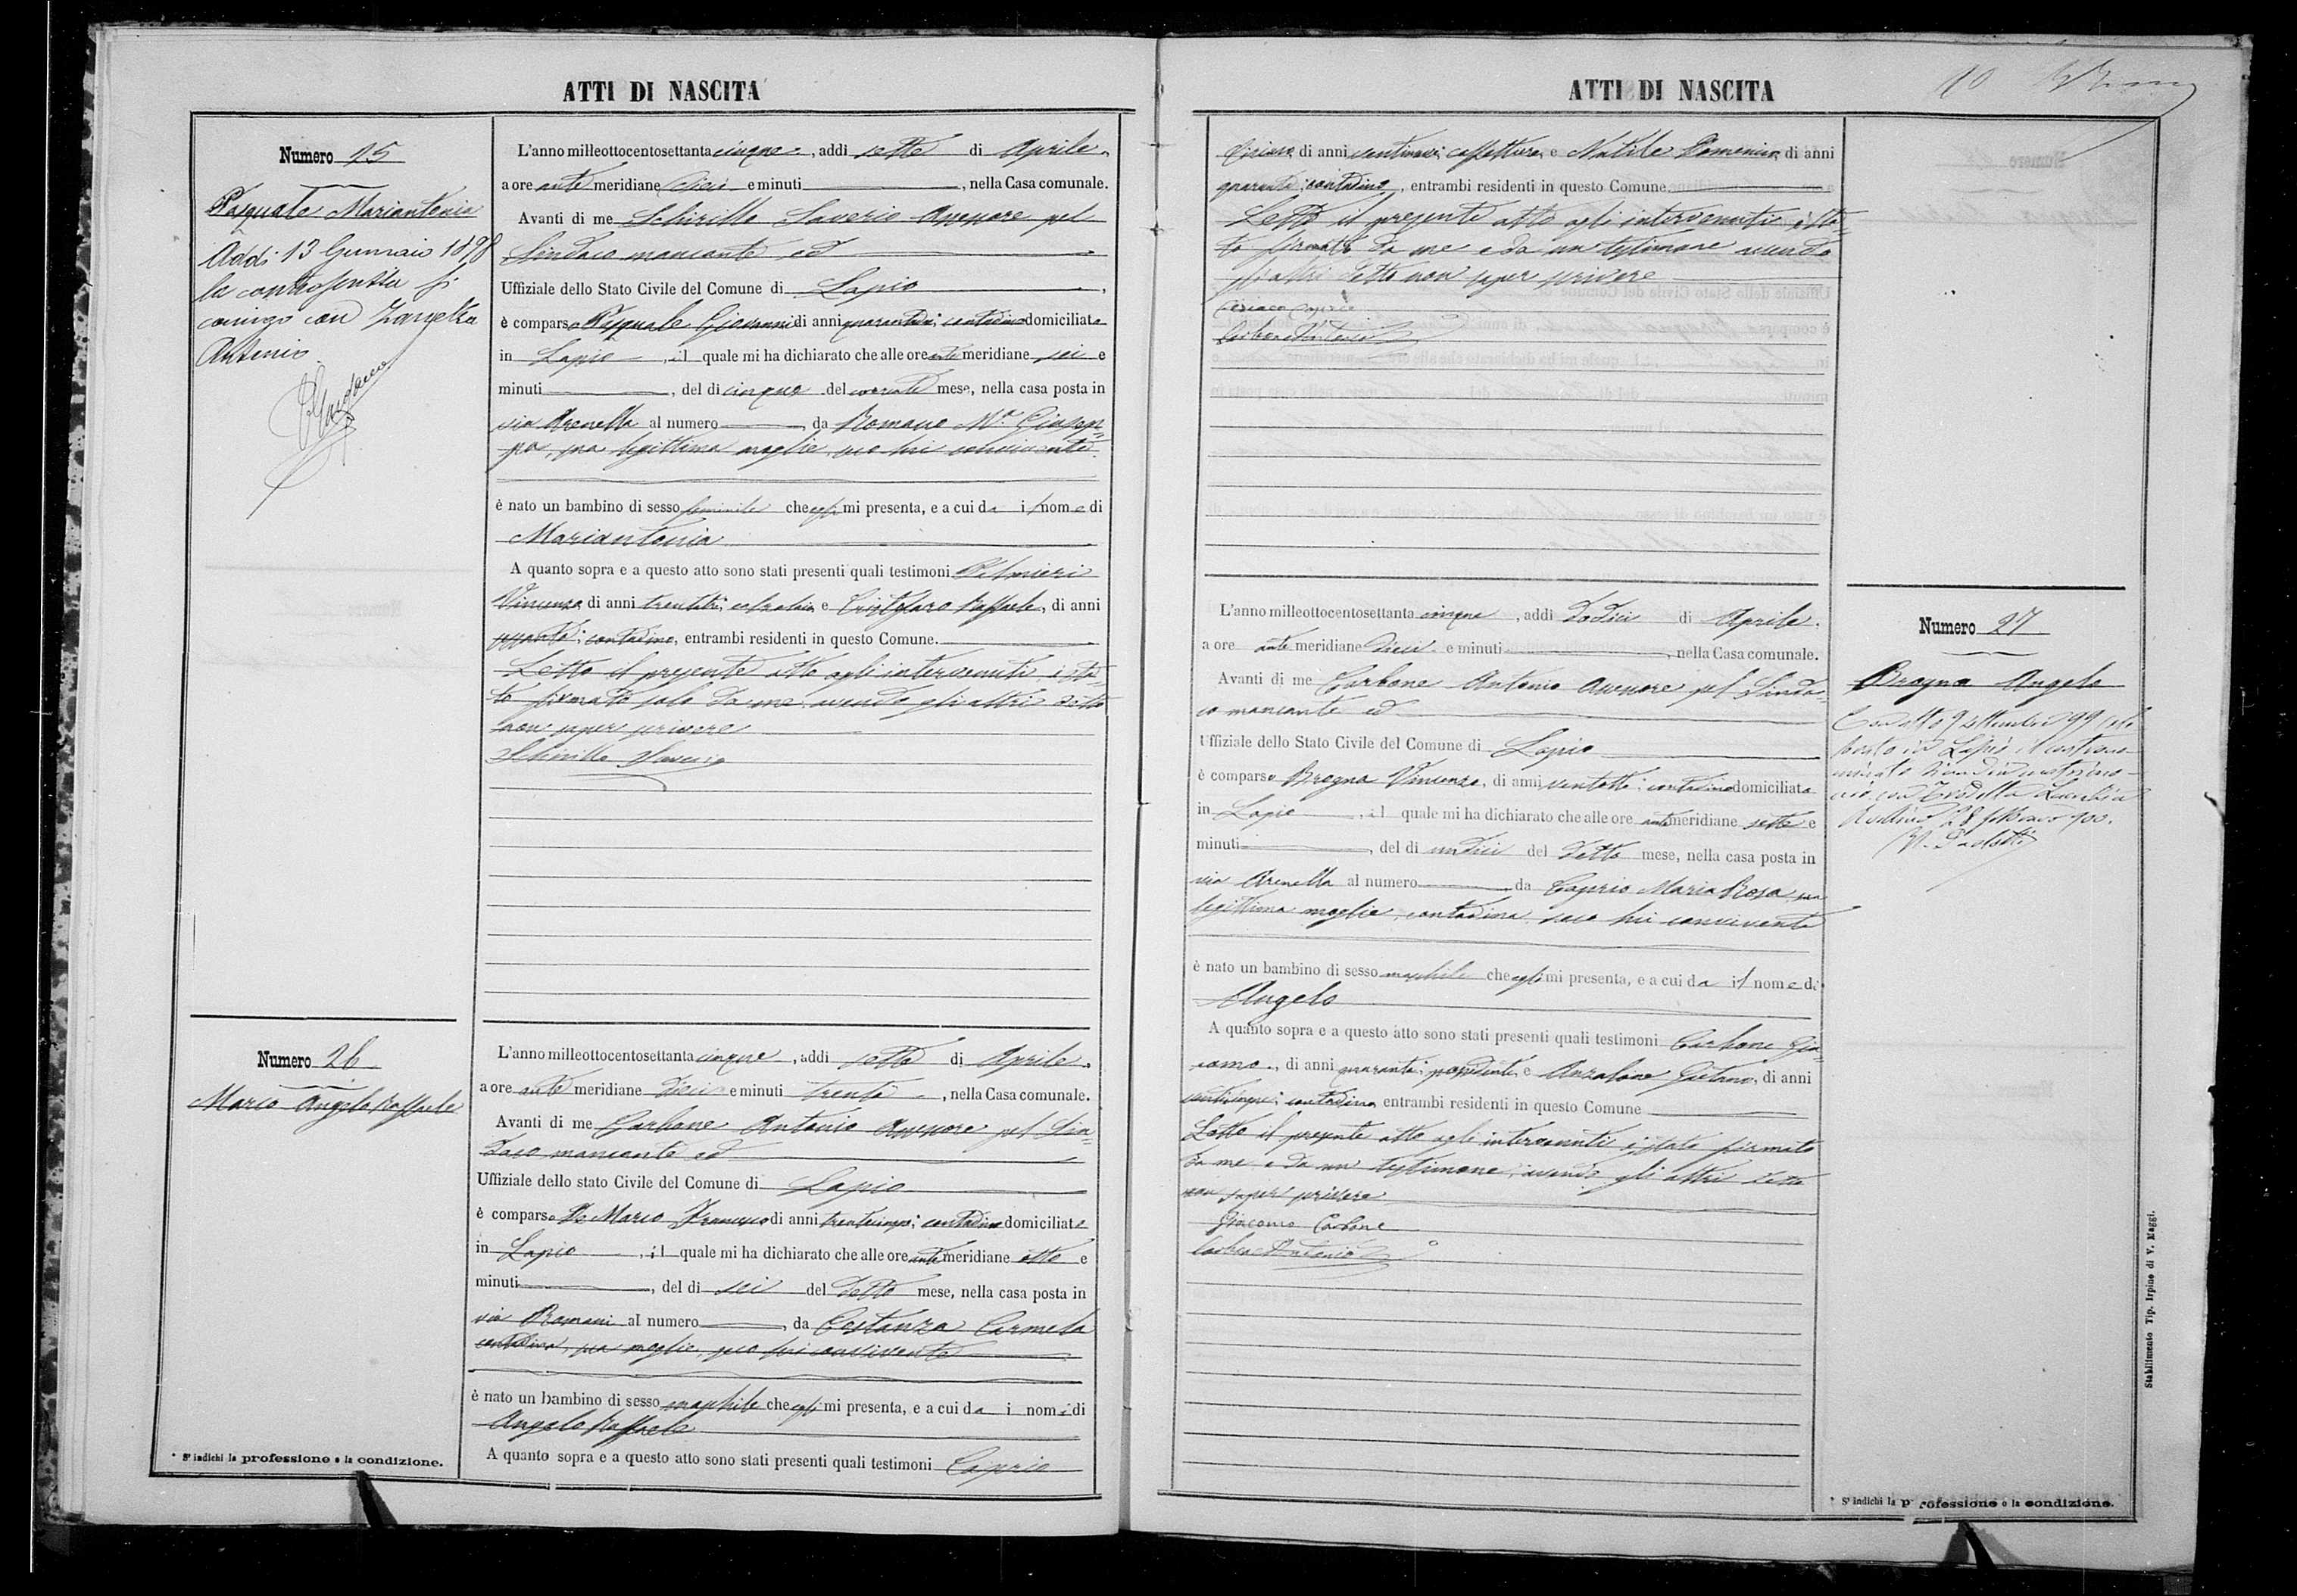 ATTI DI NASCITA
Numero 25
Pasquale Mariantonia
Addi 13 Gennaio 1898
la controscritta si
coniugò con Zarrella
Antonio
L'anno milleottocentosettanta cinque, addì sette di Aprile,
a ore ante meridiane dieci e minuti , nella Casa comunale.
Avanti di me Schirillo Saverio Assessore pel
Sindaco mancante ed
Uffiziale dello Stato Civile del Comune di Lapio,
è comparso Pasquale Giovanni di anni contadino domiciliato
in Lapio, il quale mi ha dichiarato che alle ore ante meridiane sei e
minuti , del dì cinque del corrente mese, nella casa posta in
via Arenella al numero da Romano M.a Giusep-
pa, sua legittima moglie, seco lui convivente
è nato un bambino di sesso feminile che egli mi presenta, e a cui da il nome di
Mariantonia
A quanto sopra e a questo atto sono stati presenti quali testimoni Palmieri
Vincenzo di anni trentatre, calzolaio e Cristofaro Raffaele, di anni
contadino, entrambi residenti in questo Comune.
Letto il presente atto agli intervenuti, è sta-
to firmato solo da me avendo gli altri detto
non saper scrivere
Schirillo Saverio
Numero 26
Marco Angelo Raffaele
L'anno milleottocentosettanta cinque, addì sette di Aprile,
a ore ante meridiane dieci e minuti trenta, nella Casa comunale.
Avanti di me Carbone Antonio Assessore pel Sin-
daco mancante ed
Uffiziale dello stato Civile del Comune di Lapio
è comparso De Marco Francesco di anni trentacinque, contadino domiciliato
in Lapio, il quale mi ha dichiarato che alle ore ante meridiane otto e
minuti , del dì sei del detto mese, nella casa posta in
via Romani al numero , da Costanza Carmela
contadina, sua moglie, seco lui convivente
è nato un bambino di sesso maschile che egli mi presenta, e a cui da i nomi di
Angelo Raffaele
A quanto sopra e a questo atto sono stati presenti quali testimoni Caprio
* S' indichi la professione o la condizione.
ATTI DI NASCITA
10
Ciriaco, di anni ventinove, caffettiere, e Natile Domenico, di anni
quaranta, contadino, entrambi residenti in questo Comune.
Letto il presente atto agli intervenuti è sta-
to firmato da me e da un testimone avendo
gli altri detto non saper scrivere
Ciriaco Caprio
Carbone Antonio
L'anno milleottocentosettanta cinque, addì dodici di Aprile,
a ore ante meridiane dieci e minuti , nella Casa comunale.
Avanti di me Carbone Antonio Assessore pel Sinda-
co mancante ed
Uffiziale dello Stato Civile del Comune di Lapio
è comparso Bregna Vincenzo, di anni ventotto, contadino domiciliato
in Lapio, il quale mi ha dichiarato che alle ore ante meridiane sette e
minuti , del dì undici del detto mese, nella casa posta in
via Arenella al numero da Caprio Maria Rosa sua
legittima moglie, contadina, seco lui convivente
è nato un bambino di sesso maschile che egli mi presenta, e a cui da il nome di
Angelo
A quanto sopra e a questo atto sono stati presenti quali testimoni Carbone Gia-
como, di anni quaranta, possidente, e Anzalone Gaetano, di anni
venticinque, contadino, entrambi residenti in questo Comune
Letto il presente atto agli intervenuti è stato firmato
da me e da un testimone, avendo gli altri detto
non saper scrivere
Giacomo Carbone
Carbone Antonio
Numero 27
Bregna Angelo
Con atto 9 settembre 99 cele
brato in Lapio il controno-
minato si unì in matrimo-
nio con
Avellino 28 febbraio 900.
* S' indichi la professione o la condizione.
Stabilimento Tip. Irpino di V. Maggi.